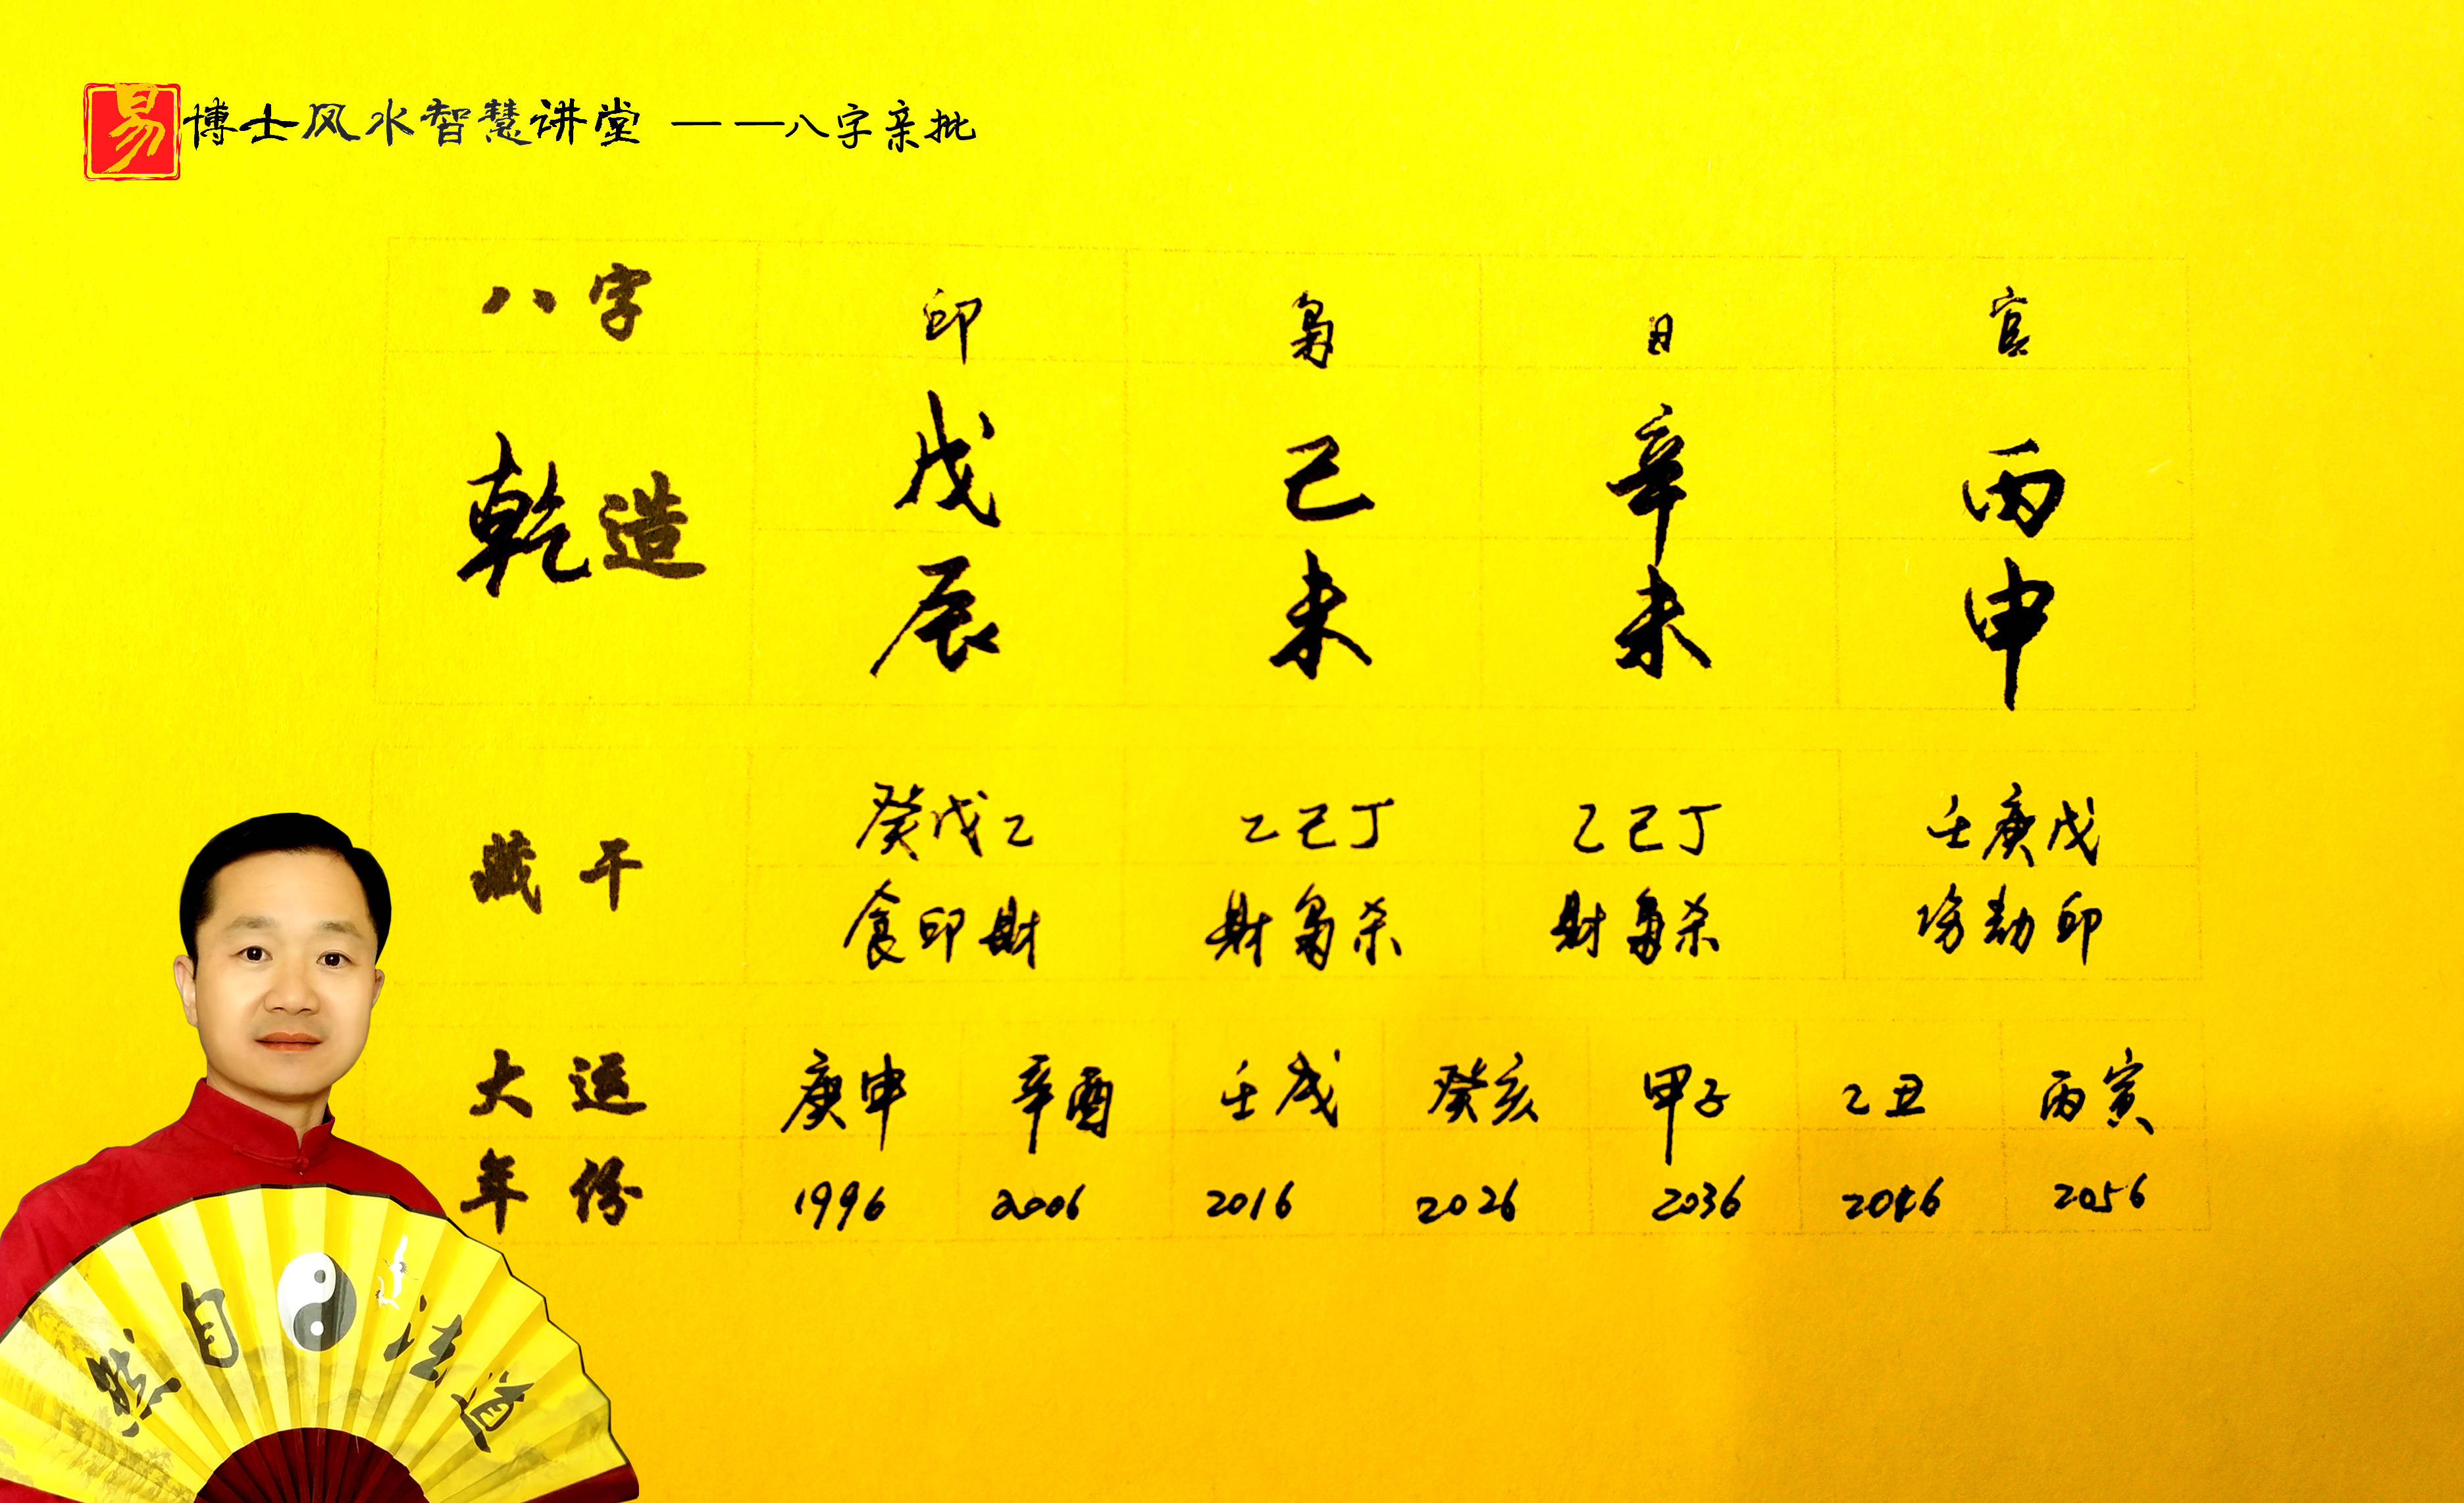 易 博士风水智慧讲堂 ——八字亲批
八字 印 枭 日 官
乾造 戊 己 辛 丙
辰 未 未 申
藏干 癸戊乙 乙己丁 乙己丁 壬庚戊
食印财 财枭杀 财枭杀 伤劫印
大运 庚申 辛酉 壬戌 癸亥 甲子 乙丑 丙寅
年份 1996 2006 2016 2026 2036 2046 2056
道法自然